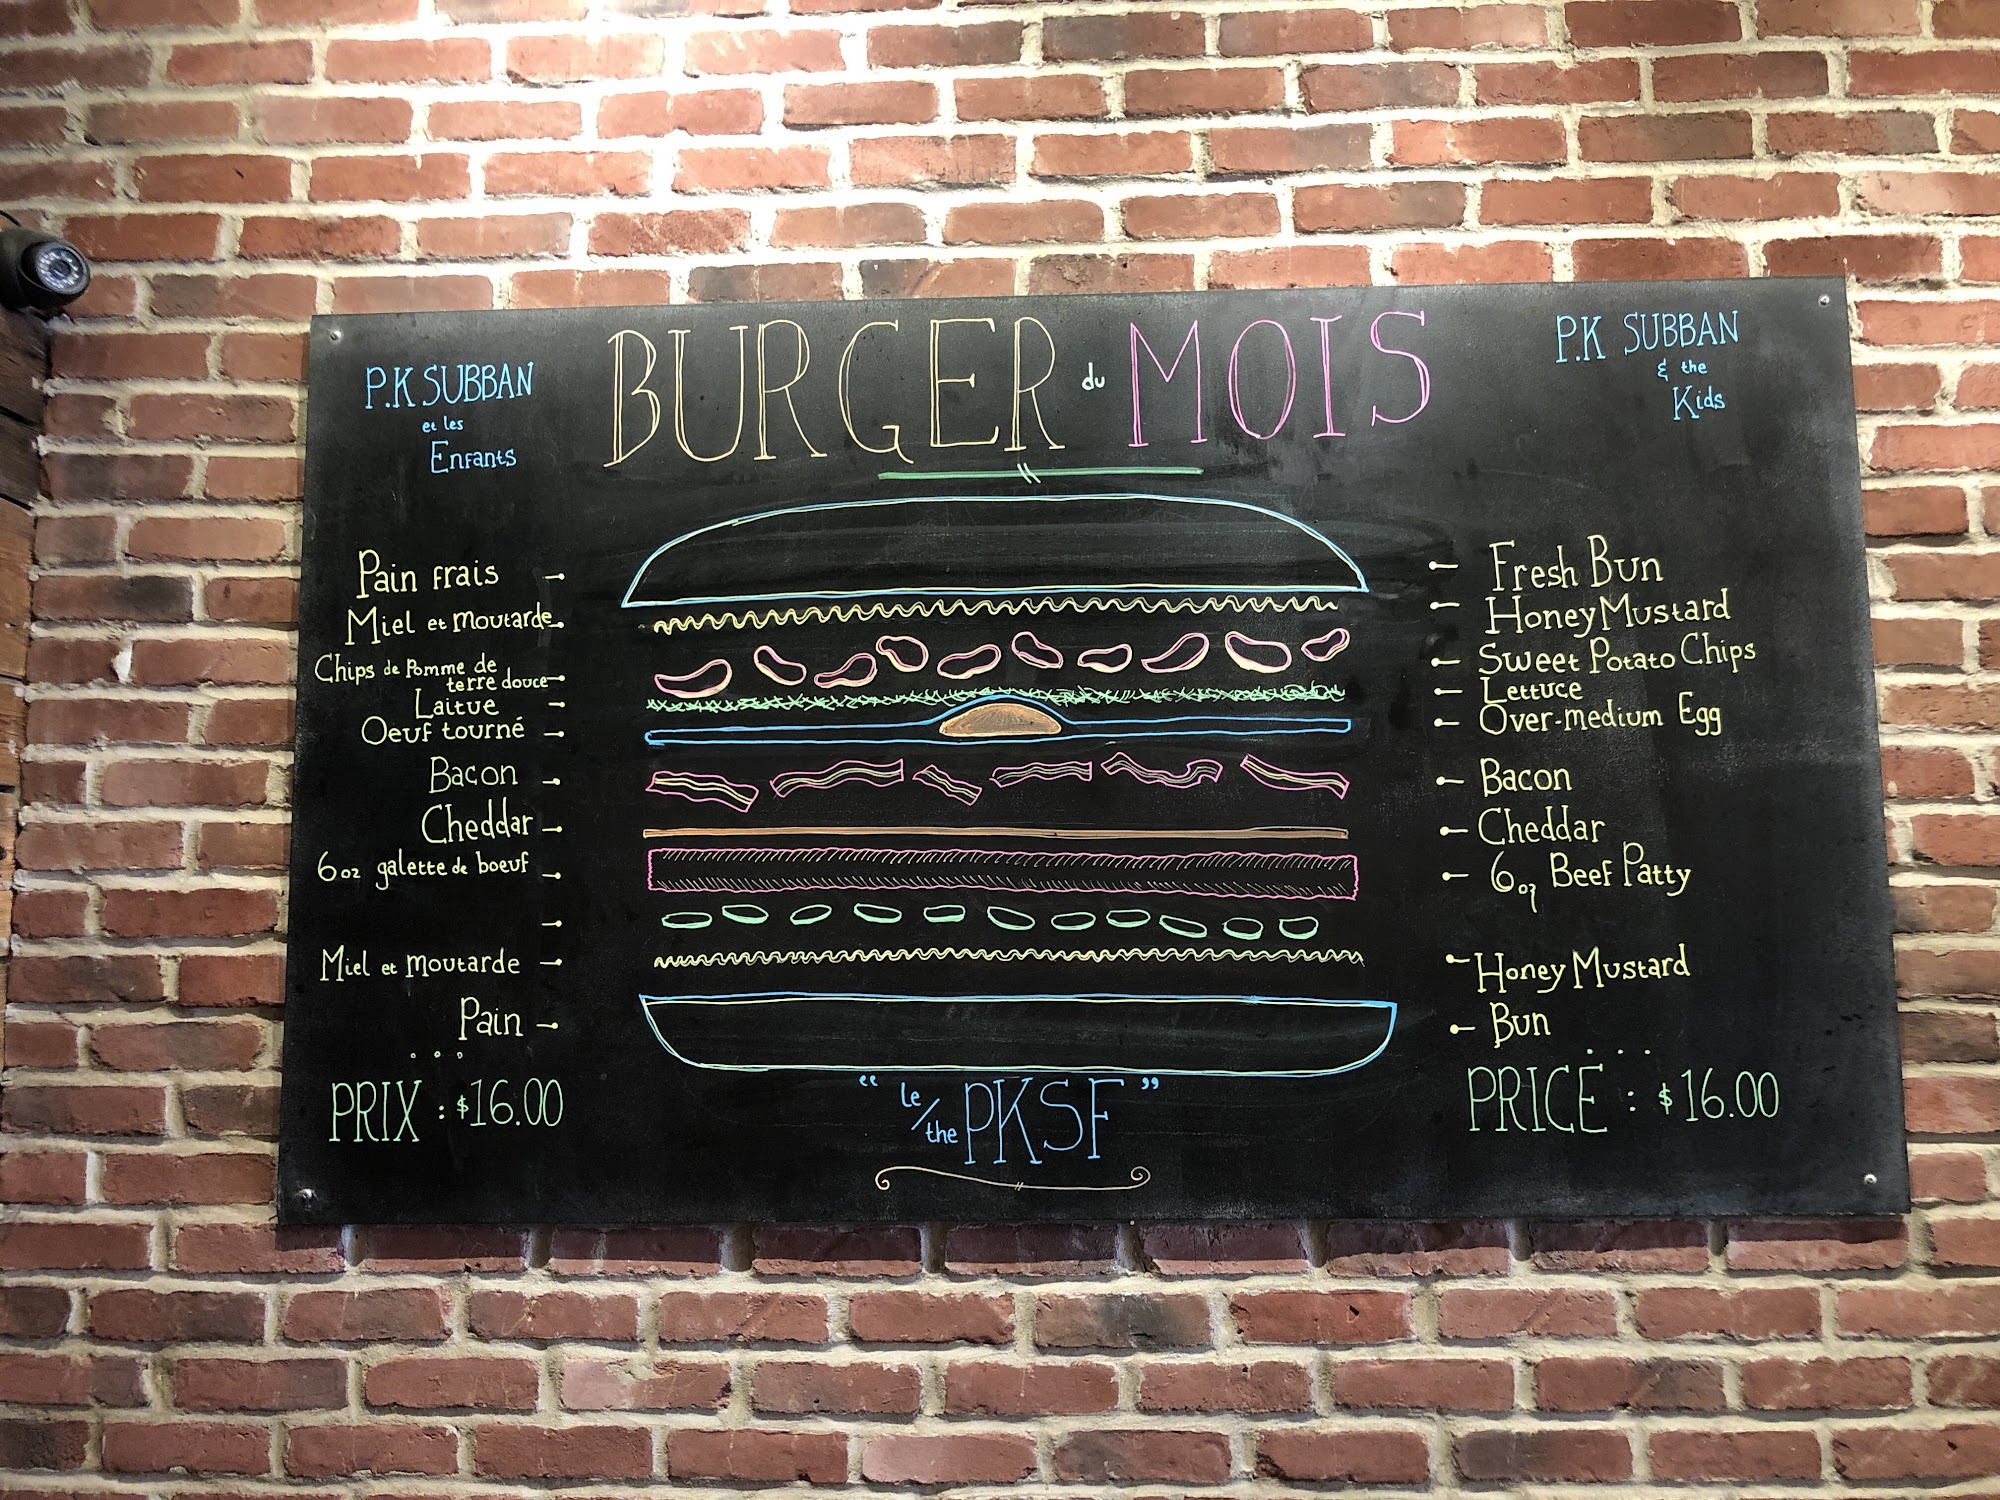 BURGER du MOIS
P.K SUBBAN
et les
Enfants
Pain frais
Miel et moutarde
Chips de Pomme de
terre douce
Laitue
Oeuf tourné
Bacon
Cheddar
6oz galette de boeuf
Miel et moutarde
Pain
PRIX : $16.00
P.K SUBBAN
& the
Kids
Fresh Bun
Honey Mustard
Sweet Potato Chips
Lettuce
Over-medium Egg
Bacon
Cheddar
6oz Beef Patty
Honey Mustard
Bun
PRICE : $16.00
"le/the PKSF"